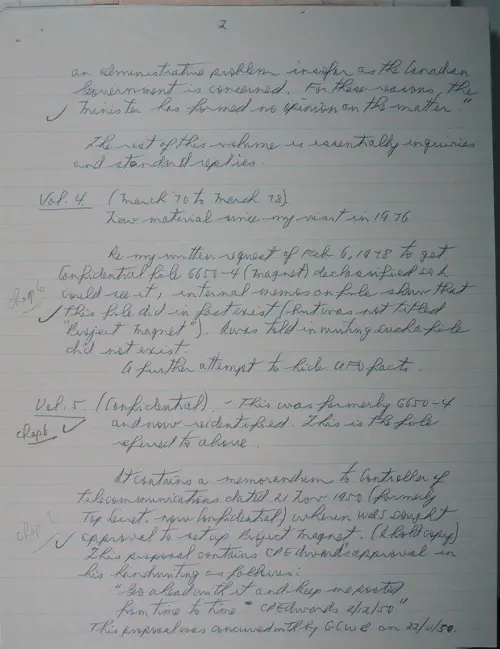 2
an administrative problem insofar as the Canadian
Government is concerned. For these reasons, the
Minister has formed no opinion on the matter"
The rest of this volume is essentially inquiries
and standard replies.
Vol. 4. (March '70 to March 78)
material since my visit in 1976
Re my written request of Feb 6, 1978 to get
Confidential file 6650-4 (Magnet) declassified so I
could see it, internal memos on file show that
chap 6
this file did in fact exist (but was not titled
"Project Magnet"). I was told in writing such a file
did not exist.
A further attempt to hide UFO facts.
Vol. 5. (Confidential). - This was formerly 6650-4
chap 6
and now reidentified. This is the file
referred to above.
It contains a memorandum to Controller of
Telecommunications dated 21 Nov 1950 (formerly
Top Secret, now Confidential) wherein was sought
chap
approval to set up Project Magnet. (I hold copy)
This proposal contains CPEdwards' approval in
his handwriting as follows:
"Go ahead with it and keep me posted
from time to time" CPEdwards 2/12/50"
This proposal was concurred with by GCWB on 22/11/50.